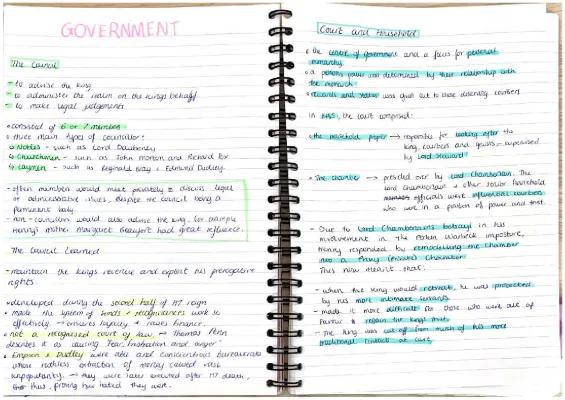 GOVERNMENT
The Council
- to advise the king
- to administer the realm on the kings behalf
- to make legal judgements
• consisted of 6 or 7 members
• three main types of councillor:
Nobles - such as Lord Daubeney
Churchmen - such as John Morton and Richard Fox
Laymen - such as Reginald Bray + Edmund Dudley.
- often members would meet privately to discuss legal
or administrative issues, despite the council being a
permanent body.
- non-councillors would also advise the king, for example
Henry's mother Margaret Beaufort had great influence.
The Council Learned
- maintain the kings revenue and exploit his prerogative
rights.
• developed during the second half of H7 reign
• made the system of bonds + recognisances work so
effectively → ensures loyalty + raises finance.
• not a recognised court of law → Thomas Penn
describes it as causing 'fear, frustration and anger'
• Empson & Dudley were able and conscientious bureaucrats
whose ruthless extraction of money caused
unpopularity → they were later executed after H7 death,
thus, proving how hated they were.
Court and Household
• the centre of government and a focus for personal
monarchy
• a persons power was determined by their relationship with
the monarch
• rewards and status was given out to those deserving courtiers
In , the court comprised:
• the household proper → responsible for looking after the
king, courtiers and guests - supervised
by Lord Steward
• The chamber → presided over by Lord Chamberlain. The
lord chamberlain + other senior household
officials were influential courtiers
who work in a position of power and trust.
- Due to Lord Chamberlains betrayal in his
involvement in the Perkin Warbeck imposture,
Henry responded by remodelling the chamber
into a Privy (private) Chamber
This now meant that:
- when the king would retreat, he was protected
by his more intimate servants
- made it more difficult for those who were out of
favour to regain the kings trust
- the king was cut off from much of his more
traditional contacts at court